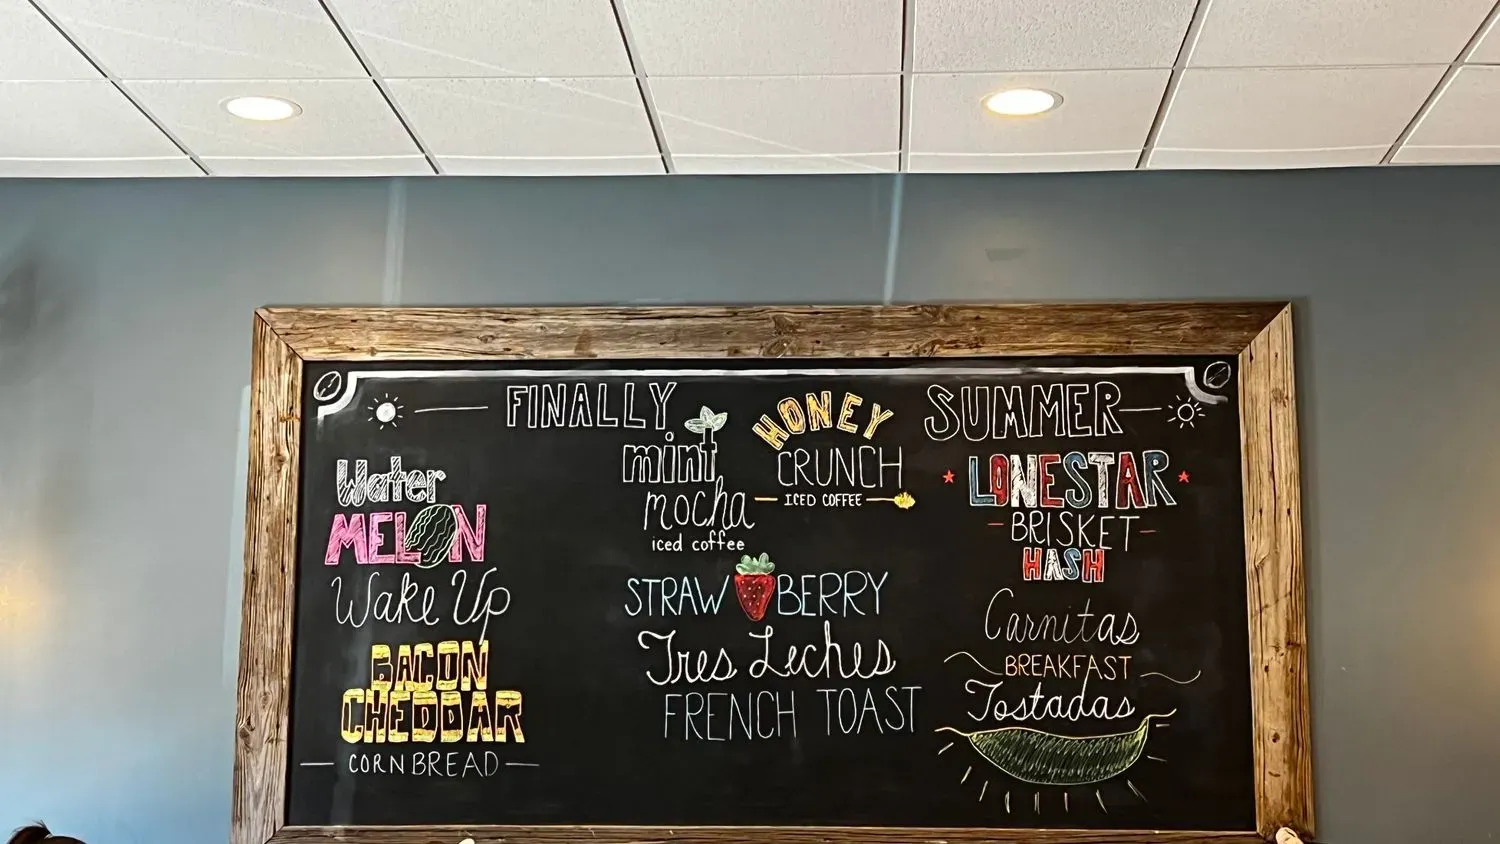 FINALLY SUMMER
Water
MELON
Wake Up
BACON
CHEDDAR
CORNBREAD
mint
mocha
iced coffee
HONEY
CRUNCH
ICED COFFEE
STRAWBERRY
Tres Leches
FRENCH TOAST
LONESTAR
BRISKET
HASH
Carnitas
BREAKFAST
Tostadas